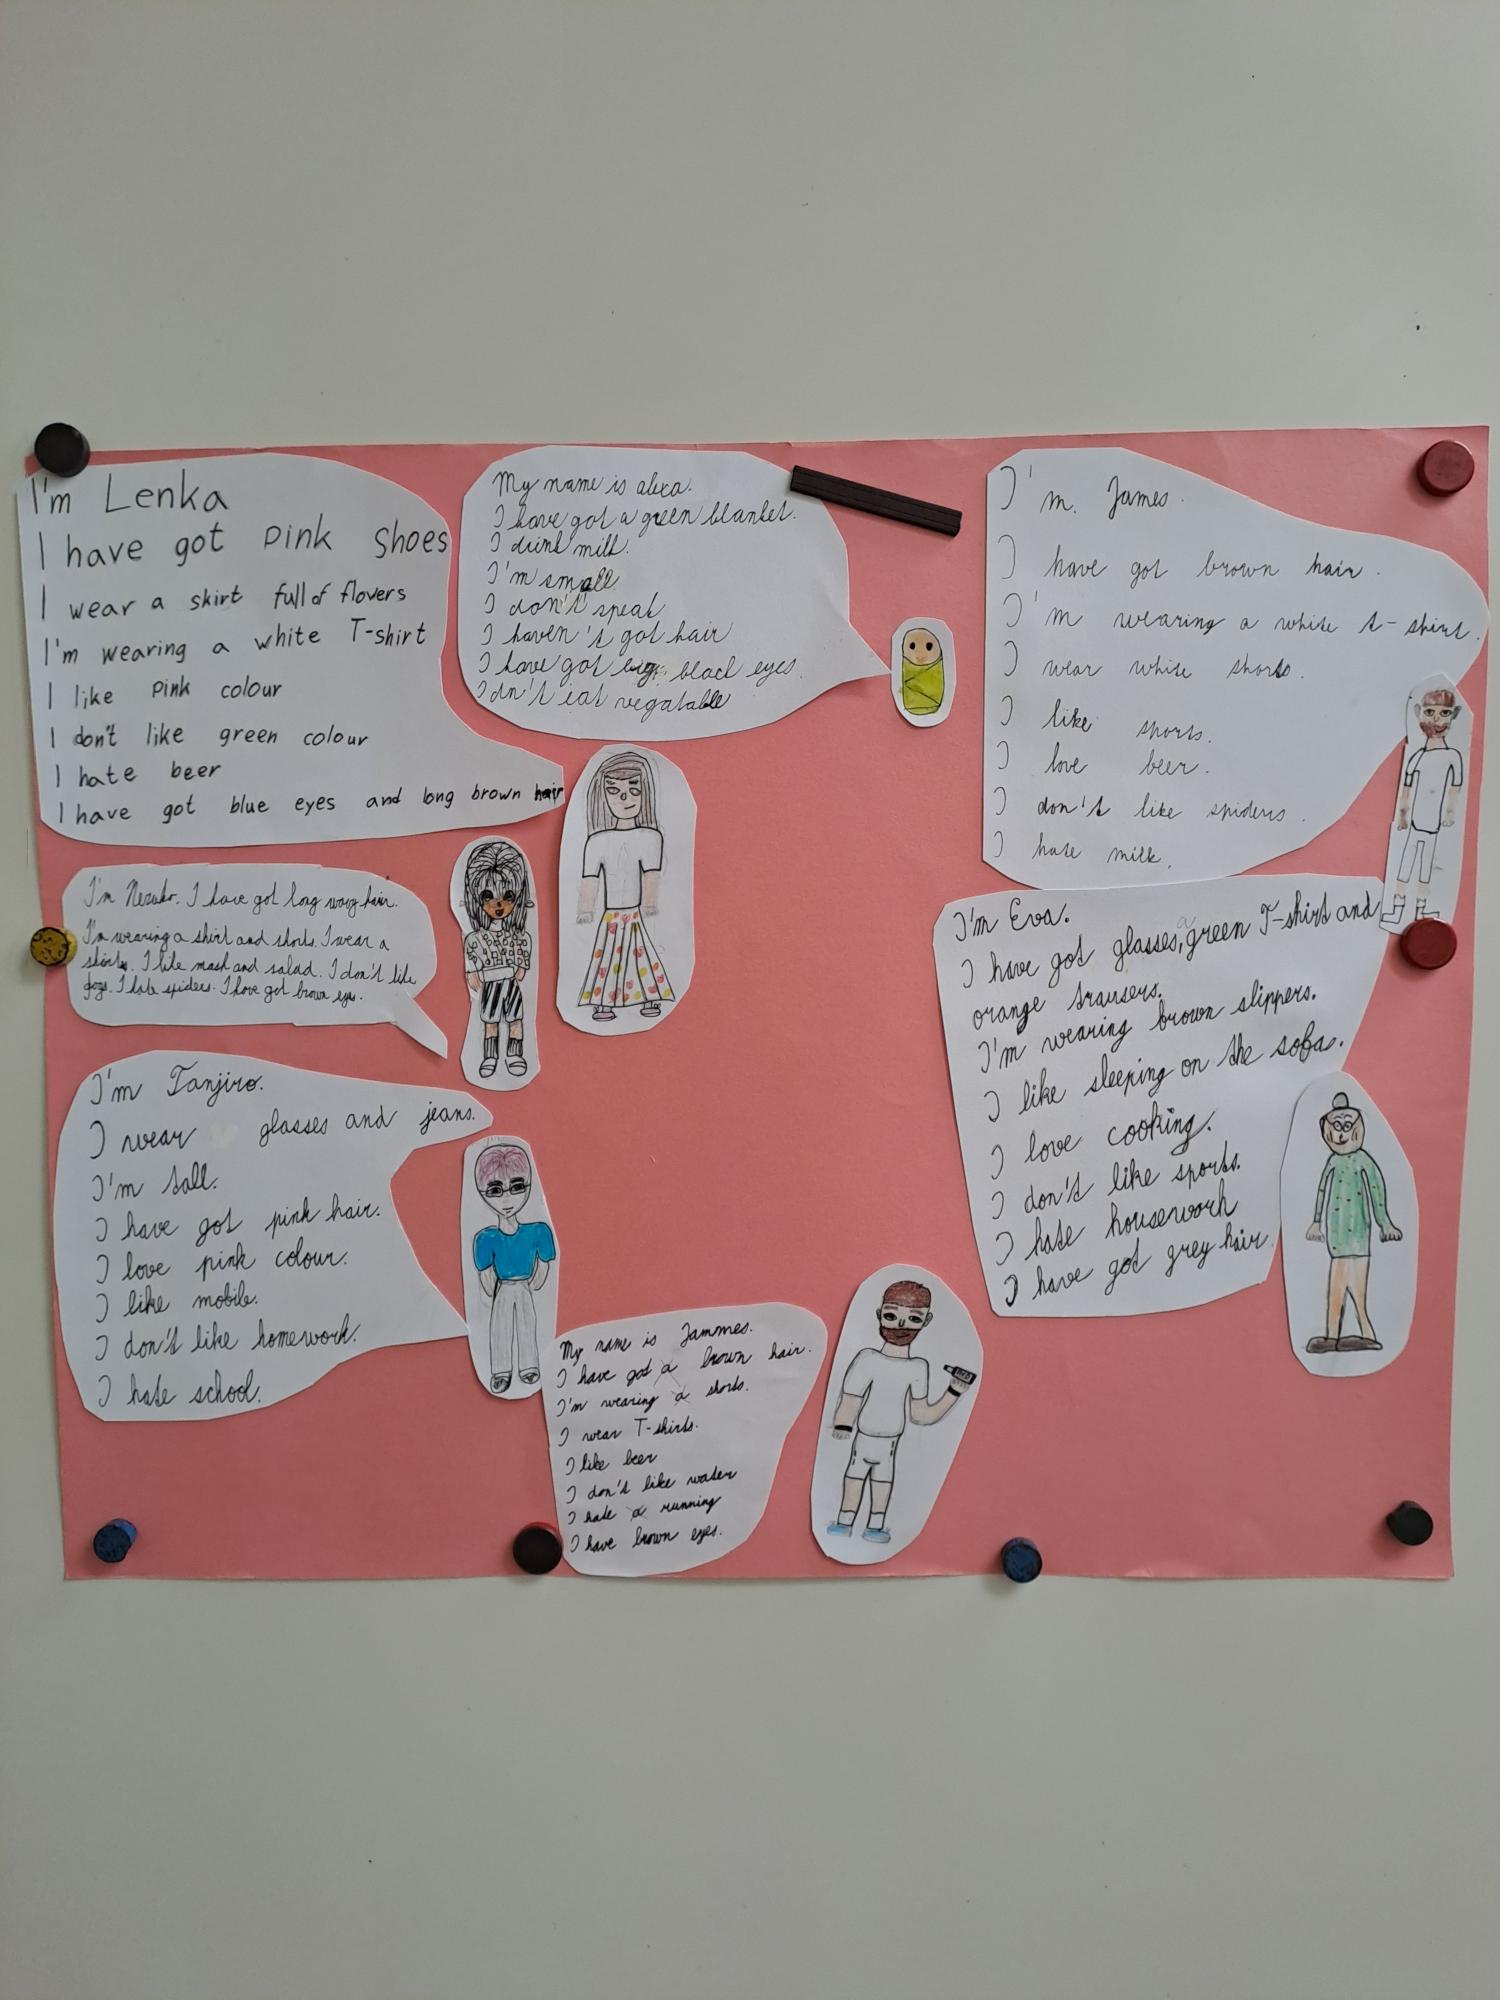 I'm Lenka
I have got pink shoes
I wear a skirt full of flovers
I'm wearing a white T-shirt
I like pink colour
I don't like green colour
I hate beer
I have got blue eyes and long brown hair
My name is alexa.
I have got a green blanket.
I drink milk.
I'm small
I don't speak
I haven't got hair
I have got big black eyes.
I dn't eat vegatable
I'm. James.
I have got brown hair.
I'm wearing a white t-shirt.
I wear white shorts.
I like sports.
I love beer.
I don't like spiders.
I hate milk.
I'm Nezuko. I have got long wavy hair.
I'm wearing a shirt and shorts. I wear a
skirts. I like mash and salad. I don't like
dogs. I hate spiders. I have got brown eyes.
I'm Eva.
I have got glasses, a green T-shirt and
orange trausers.
I'm wearing brown slippers.
I like sleeping on the sofa.
I love cooking.
I don't like sports.
I hate housework
I have got grey hair.
I'm Tanjiro.
I wear glasses and jeans.
I'm tall.
I have got pink hair.
I love pink colour.
I like mobile.
I don't like homework.
I hate school.
My name is Jammes.
I have got a brown hair.
I'm wearing a shorts.
I wear T-shirts.
I like beer
I don't like water
I hate a running
I have brown eyes.